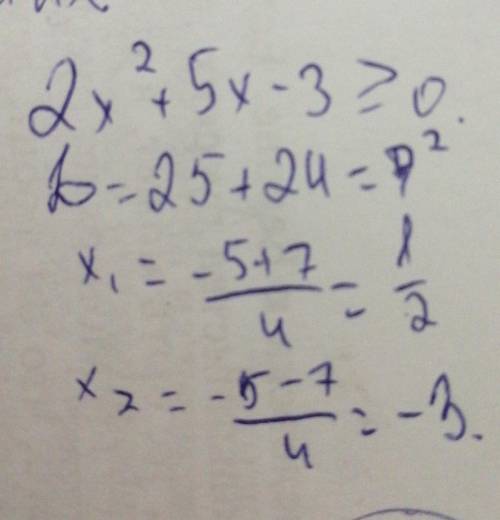 2x² + 5x - 3 ≥ 0.
D = 25 + 24 = 7²
x₁ = (-5+7)/4 = 1/2
x₂ = (-5-7)/4 = -3.